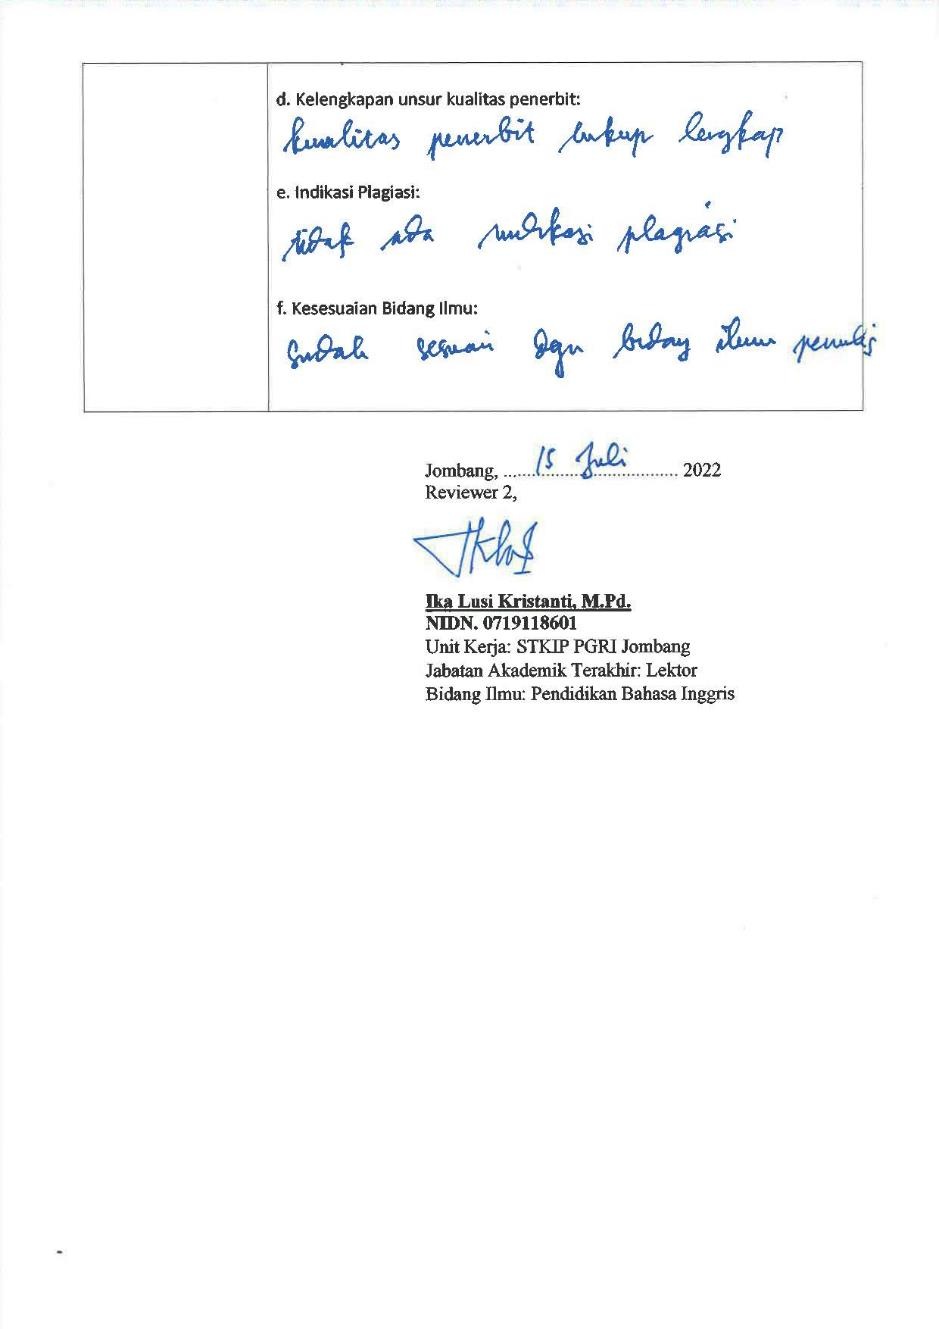 d. Kelengkapan unsur kualitas penerbit:
kualitas penerbit cukup lengkap
e. Indikasi Plagiasi:
tidak ada indikasi plagiasi
f. Kesesuaian Bidang Ilmu:
Sudah sesuai dgn bidang ilmu penulis
Jombang, ......15 Juli...... 2022
Reviewer 2,
Ika Lusi Kristanti, M.Pd.
NIDN. 0719118601
Unit Kerja: STKIP PGRI Jombang
Jabatan Akademik Terakhir: Lektor
Bidang Ilmu: Pendidikan Bahasa Inggris